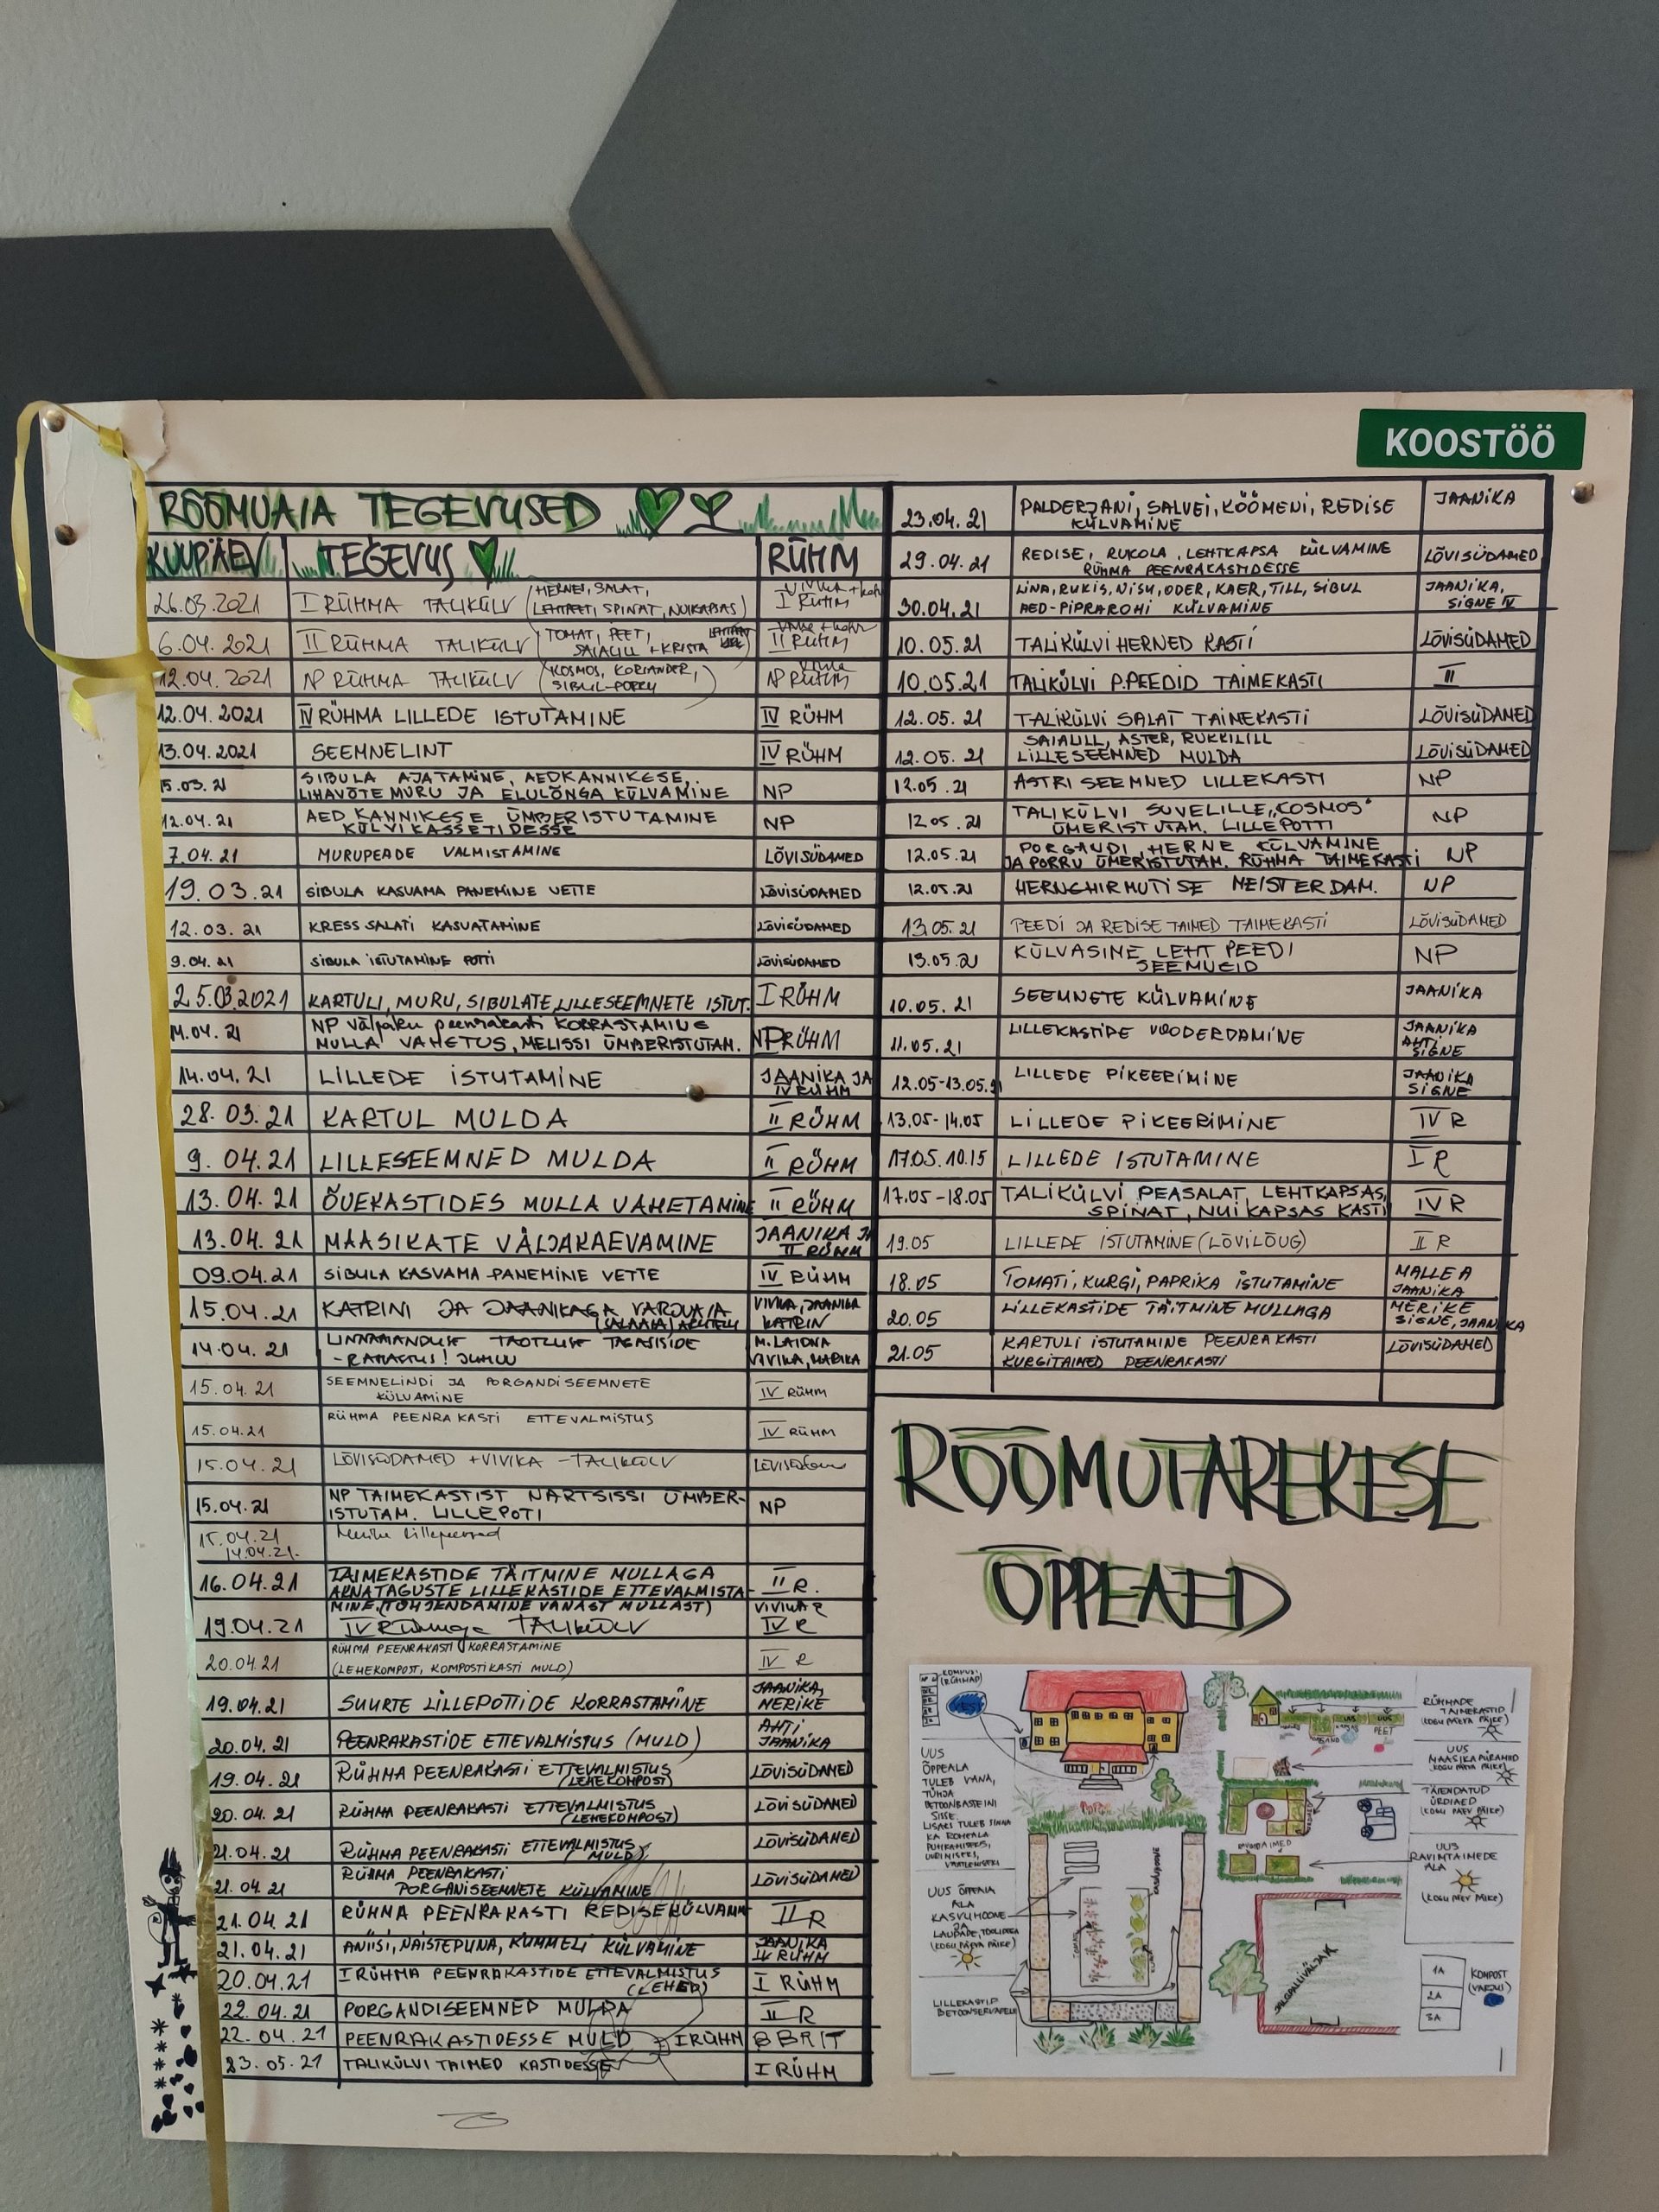 KOOSTÖÖ
RÕÕMUAIA TEGEVUSED
KUUPÄEV TEGEVUS RÜHM
26.03.2021 I RÜHMA TALIKÜLV (HERNEI, SALAT, SPINAT, NUIKAPSAS) I RÜHM
6.04.2021 II RÜHMA TALIKÜLV (TOMAT, PEET, SAIALILL + KRISTA II RÜHM
12.04.2021 NP RÜHMA TALIKÜLV (KOSMOS, KORIANDER, SIBUL-PORRU) NP RÜHM
12.04.2021 IV RÜHMA LILLEDE ISTUTAMINE IV RÜHM
13.04.2021 SEEMNELINT IV RÜHM
15.03.21 SIBULA AJATAMINE, AEDKANNIKESE,
LIHAVÕTE MURU JA ELULÕNGA KÜLVAMINE NP
12.04.21 AED KANNIKESE ÜMBERISTUTAMINE
KÜLVIKASSETIDESSE NP
7.04.21 MURUPEADE VALMISTAMINE LÕVISÜDAMED
19.03.21 SIBULA KASVAMA PANEMINE VETTE LÕVISÜDAMED
12.03.21 KRESSSALATI KASVATAMINE LÕVISÜDAMED
9.04.21 SIBULA ISTUTAMINE POTTI LÕVISÜDAMED
25.03.2021 KARTULI, MURU, SIBULATE, LILLESEEMNETE ISTUT. I RÜHM
14.04.21 NP väljaku peenrakasti KORRASTAMINE
MULLA VAHETUS, MELISSI ÜMBERISTUTAM. NP RÜHM
14.04.21 LILLEDE ISTUTAMINE JAANIKA JA
IV RÜHM
28.03.21 KARTUL MULDA II RÜHM
9.04.21 LILLESEEMNED MULDA II RÜHM
13.04.21 ÕUEKASTIDES MULLA VAHETAMINE II RÜHM
13.04.21 MAASIKATE VÄLJAKAEVAMINE JAANIKA JA
II RÜHM
09.04.21 SIBULA KASVAMA PANEMINE VETTE IV RÜHM
15.04.21 KATRINI JA JAANIKAGA VARJUAIA VIVIKA, JAANIKA
KATRIN
14.04.21 LINNAMAJANDUSE TAOTLUSE TAGASISIDE M. LAIDNA
- RAHASTUS! JUHUU VIVIKA, MARIKA
15.04.21 SEEMNELINDI JA PORGANDISEEMNETE
KÜLVAMINE IV RÜHM
15.04.21 RÜHMA PEENRAKASTI ETTEVALMISTUS IV RÜHM
15.04.21 LÕVISÜDAMED + VIVIKA - TALIKÜLV
15.04.21 NP TAIMEKASTIST NARTSISSI ÜMBER-
ISTUTAM. LILLEPOTI NP
15.04.21
14.04.21. Merike lillepeenrad
16.04.21 TAIMEKASTIDE TÄITMINE MULLAGA
AKNATAGUSTE LILLEKASTIDE ETTEVALMISTA-
MINE (TÜHJENDAMINE VANAST MULLAST) II R.
19.04.21 IV Rühmaga TALIKÜLV IV R
20.04.21 RÜHMA PEENRAKASTI KORRASTAMINE
(LEHEKOMPOST, KOMPOSTIKASTI MULD) IV R
19.04.21 SUURTE LILLEPOTTIDE KORRASTAMINE JAANIKA,
MERIKE
20.04.21 PEENRAKASTIDE ETTEVALMISTUS (MULD) AHTI
JAANIKA
19.04.21 RÜHMA PEENRAKASTI ETTEVALMISTUS
(LEHEKOMPOST) LÕVISÜDAMED
20.04.21 RÜHMA PEENRAKASTI ETTEVALMISTUS
(LEHEKOMPOST) LÕVISÜDAMED
21.04.21 RÜHMA PEENRAKASTI ETTEVALMISTUS
(MULD) LÕVISÜDAMED
21.04.21 RÜHMA PEENRAKASTI
PORGANISEEMNETE KÜLVAMINE LÕVISÜDAMED
21.04.21 RÜHMA PEENRAKASTI REDISE KÜLVAMINE II R
21.04.21 ANIISI, NAISTEPUNA, KUMMELI KÜLVAMINE JAANIKA
IV RÜHM
20.04.21 I RÜHMA PEENRAKASTIDE ETTEVALMISTUS
(LEHED) I RÜHM
22.04.21 PORGANDISEEMNED MULDA II R
22.04.21 PEENRAKASTIDESSE MULD I RÜHM BBRIT
23.05.21 TALIKÜLVI TAIMED KASTIDESSE I RÜHM
23.04.21 PALDERJANI, SALVEI, KÖÖMENI, REDISE
KÜLVAMINE JAANIKA
29.04.21 REDISE, RUKOLA, LEHTKAPSA KÜLVAMINE
RÜHMA PEENRAKASTIDESSE LÕVISÜDAMED
30.04.21 LINA, RUKIS, NISU, ODER, KAER, TILL, SIBUL
AED-PIPRAROHI KÜLVAMINE JAANIKA,
SIGNE IV
10.05.21 TALIKÜLVI HERNED KASTI LÕVISÜDAMED
10.05.21 TALIKÜLVI P.PEEDID TAIMEKASTI III
12.05.21 TALIKÜLVI SALAT TAIMEKASTI LÕVISÜDAMED
12.05.21 SAIALILL, ASTER, RUKKILILL
LILLESEEMNED MULDA LÕVISÜDAMED
12.05.21 ASTRI SEEMNED LILLEKASTI NP
12.05.21 TALIKÜLVI SUVELILLE „KOSMOS"
ÜMERISTUTAM. LILLEPOTTI NP
12.05.21 PORGANDI, HERNE KÜLVAMINE
JA PORRU ÜMERISTUTAM. RÜHMA TAIMEKASTI NP
12.05.21 HERNEHIRMUTISE MEISTERDAM. NP
13.05.21 PEEDI JA REDISE TAIMED TAIMEKASTI LÕVISÜDAMED
13.05.21 KÜLVASINE LEHT PEEDI
SEEMNEID NP
10.05.21 SEEMNETE KÜLVAMINE JAANIKA
11.05.21 LILLEKASTIDE VOODERDAMINE JAANIKA
AHTI
SIGNE
12.05-13.05.21 LILLEDE PIKEERIMINE JAANIKA
SIGNE
13.05-14.05 LILLEDE PIKEERIMINE IV R
17.05. 10.15 LILLEDE ISTUTAMINE I R
17.05-18.05 TALIKÜLVI PEASALAT, LEHTKAPSAS,
SPINAT, NUIKAPSAS KASTI IV R
19.05 LILLEDE ISTUTAMINE (LÕVILÕUG) II R
18.05 TOMATI, KURGI, PAPRIKA ISTUTAMINE MALLE A
JAANIKA
20.05 LILLEKASTIDE TÄITMINE MULLAGA MERIKE
SIGNE, JAANIKA
21.05 KARTULI ISTUTAMINE PEENRAKASTI
KURGITAIMED PEENRAKASTI LÕVISÜDAMED
RÕÕMUTAREKESE
ÕPPEAED
KOMPOST
(RÜHMAD)
UUS
ÕPPEALA
TULEB VANA,
TÜHJA
BETOONBASSEINI
SISSE.
LISAKS TULEB SINNA
KA ROHEALA
PUHKAMISEKS,
UURIMISEKS,
VAATLEMISEKS
UUS ÕPPEAIA
ALA
KASVUHOONE
JA
LAUPADE, TOOLIDEGA
(KOGU PÄEVA PÄIKE)
LILLEKASTID
BETOONSERVADEL
RÜHMADE
TAIMEKASTID
(KOGU PÄEVA PÄIKE)
UUS
MAASIKAPÜRAMIID
(KOGU PÄEVA PÄIKE)
TÄIENDATUD
ÜRDIAED
(KOGU PÄEV PÄIKE)
UUS
RAVIMTAIMEDE
ALA
(KOGU PÄEV PÄIKE)
JALGPALLIVÄLJAK
1A
2A
3A
KOMPOST
(VARJUS)